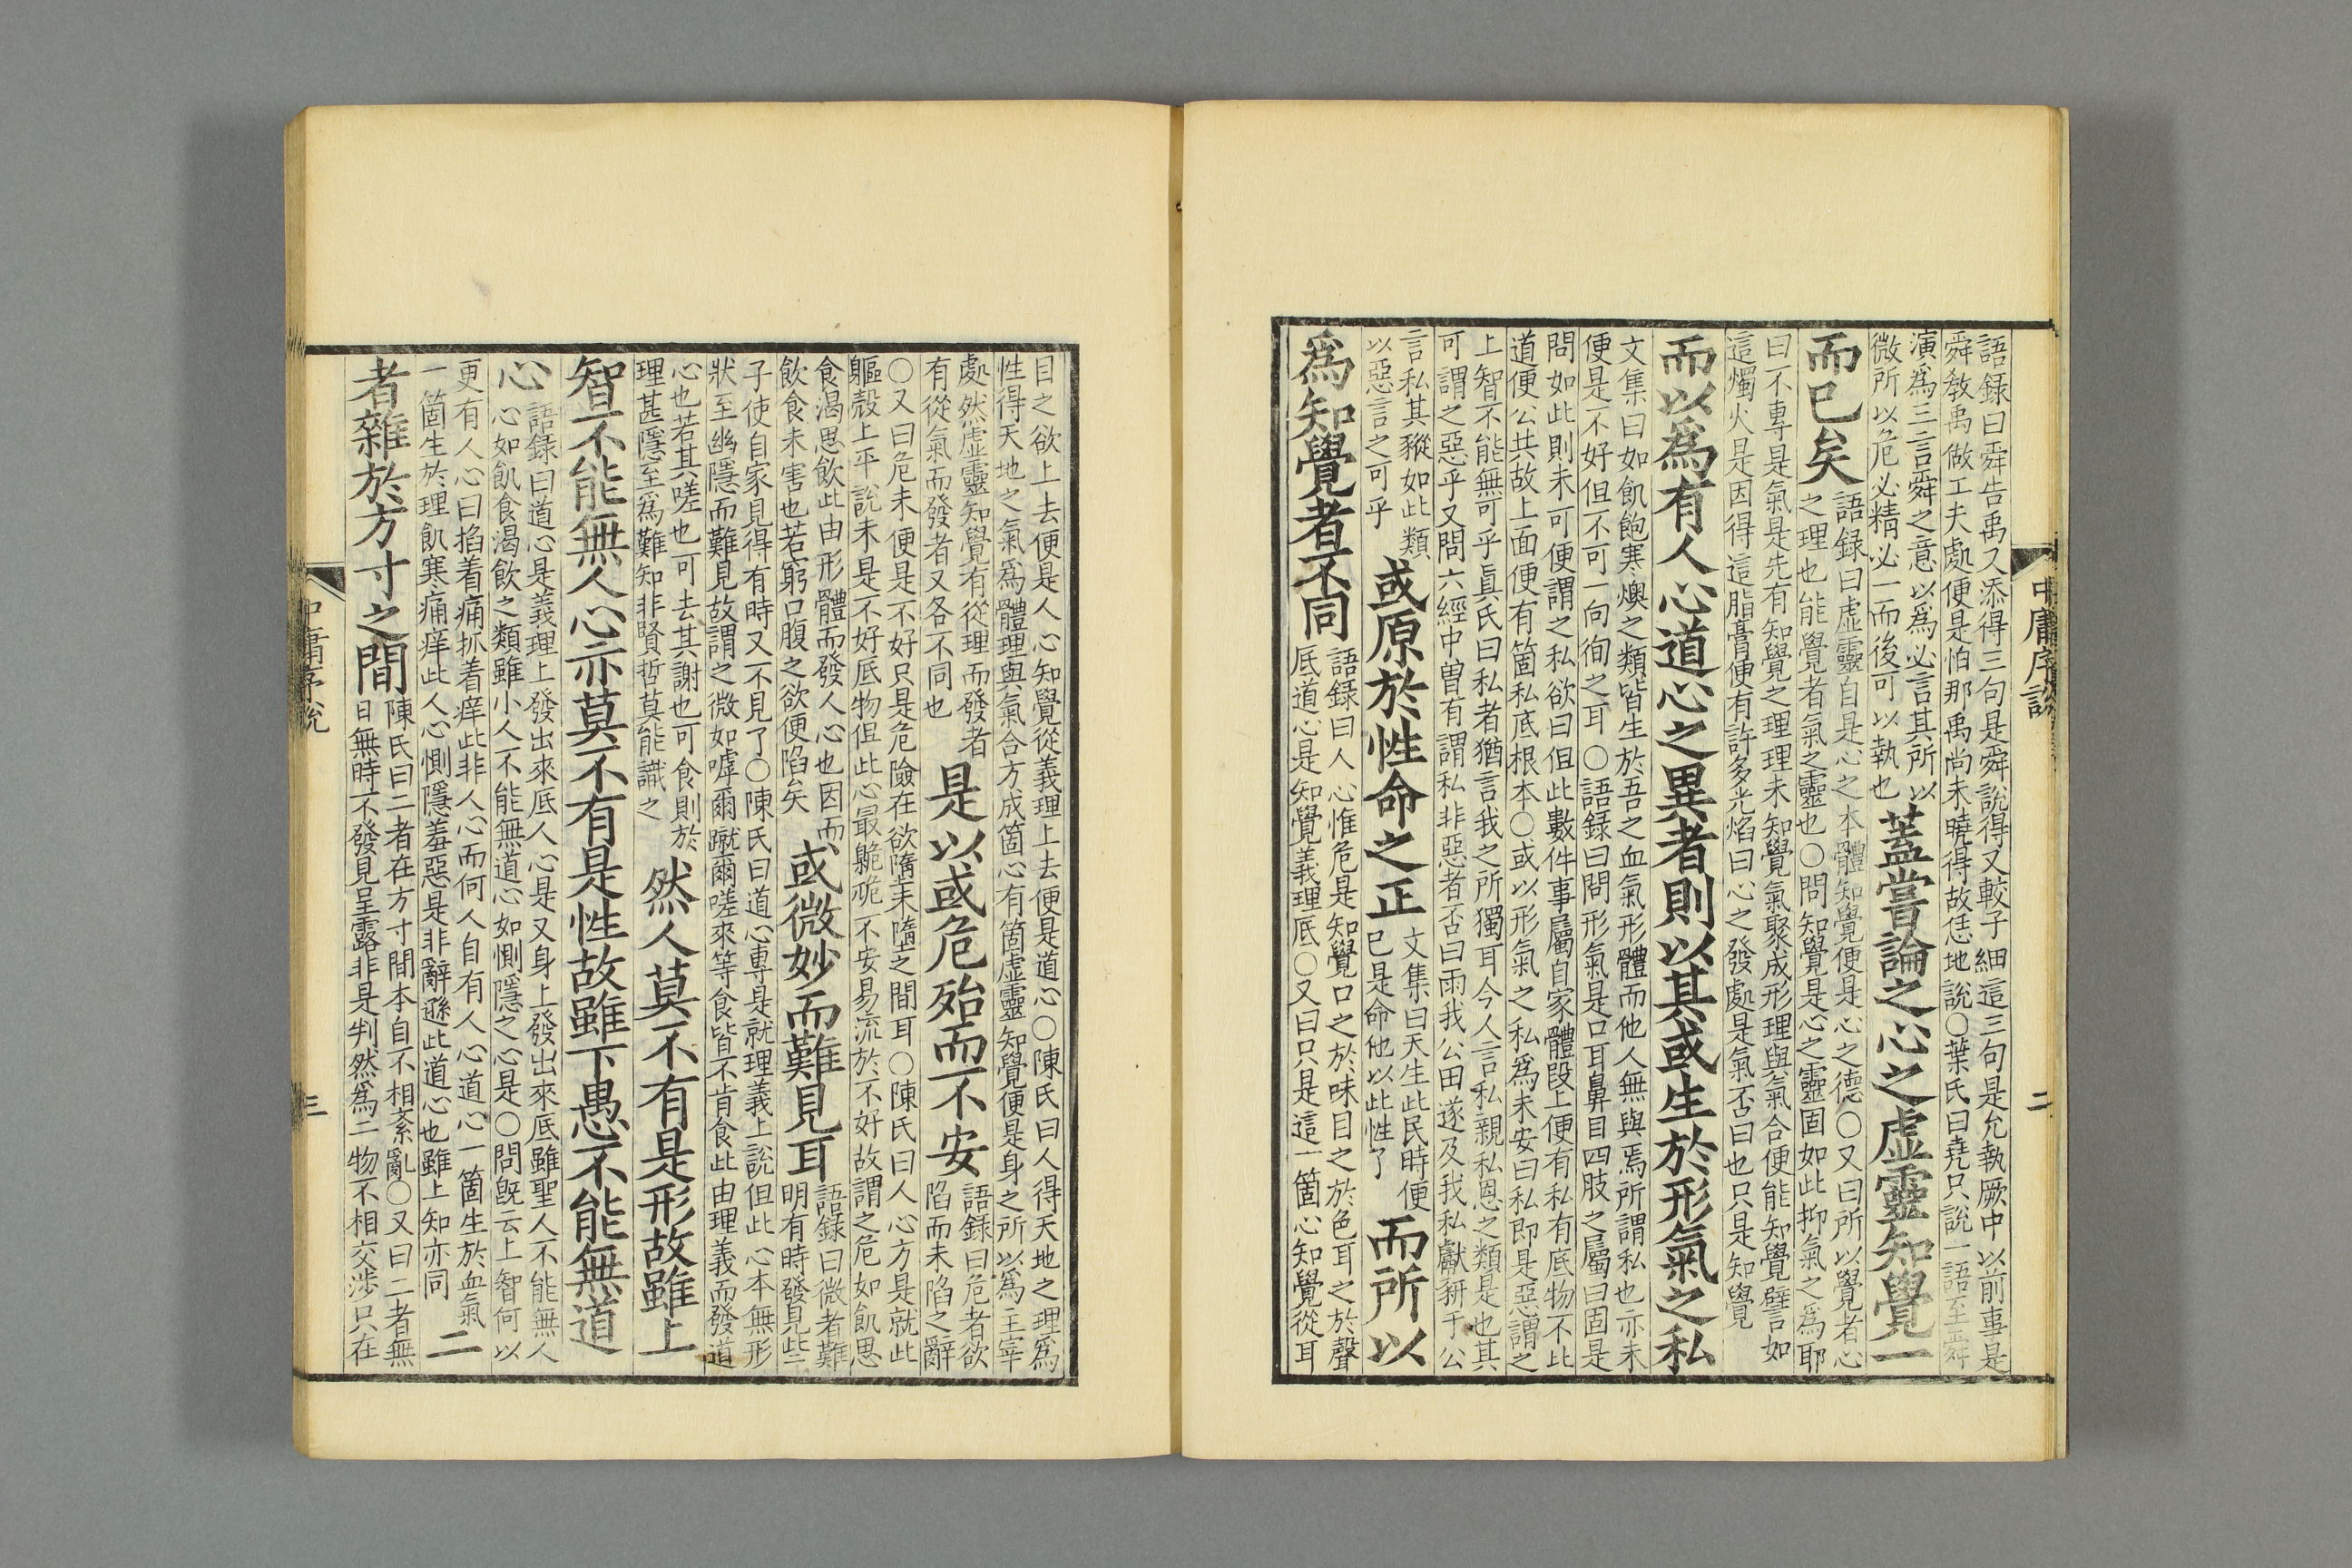 中庸序說
二
語錄曰舜告禹又添得三句是舜說得又較子細這三句是允執厥中以前事是
舜教禹做工夫處便是怕那禹尚未曉得故恁地說○葉氏曰堯只說一語至舜
演為三言舜之意以爲必言其所以
微所以危必精必一而後可以執也
蓋嘗論之心之虛靈知覺一
而已矣
語錄曰虛靈自是心之本體知覺便是心之德○又曰所以覺者心
之理也能覺者氣之靈也○問知覺是心之靈固如此抑氣之爲耶
曰不專是氣是先有知覺之理理未知覺氣聚成形理與氣合便能知覺譬言如
這燭火是因得這脂膏便有許多光焰曰心之發處是氣否曰也只是知覺
而以爲有人心道心之異者則以其或生於形氣之私
文集曰如飢飽寒燠之類皆生於吾之血氣形體而他人無與焉所謂私也亦未
便是不好但不可一向徇之耳○語錄曰問形氣是口耳鼻目四肢之屬曰固是
問如此則未可便謂之私欲曰但此數件事屬自家體段上便有私有底物不比
道便公共故上面便有箇私底根本○或以形氣之私爲未安曰私即是惡謂之
上智不能無可乎眞氏曰私者猶言我之所獨耳今人言私親私恩之類是也其
可謂之惡乎又問六經中曾有謂私非惡者否曰雨我公田遂及我私獻豜于公
言私其豵如此類
以惡言之可乎
或原於性命之正
文集曰天生此民時便
已是命他以此性了
而所以
爲知覺者不同
語錄曰人心惟危是知覺口之於味目之於色耳之於聲
底道心是知覺義理底○又曰只是這一箇心知覺從耳
目之欲上去便是人心知覺從義理上去便是道心○陳氏曰人得天地之理爲
性得天地之氣爲體理與氣合方成箇心有箇虛靈知覺便是身之所以爲主宰
處然虛靈知覺有從理而發者
有從氣而發者又各不同也
是以或危殆而不安
語錄曰危者欲
陷而未陷之辭
○又曰危未便是不好只是危險在欲墮未墮之間耳○陳氏曰人心方是就此
軀殼上平說未是不好底物但此心最臲卼不安易流於不好故謂之危如飢思
食渴思飲此由形體而發人心也因而
飲食未害也若窮口腹之欲便陷矣
或微妙而難見耳
語錄曰微者難
明有時發見些
子使自家見得有時又不見了○陳氏曰道心專是就理義上說但此心本無形
狀至幽隱而難見故謂之微如嘑爾蹴爾嗟來等食皆不肯食此由理義而發道
心也若其嗟也可去其謝也可食則於
理甚隱至爲難知非賢哲莫能識之
然人莫不有是形故雖上
智不能無人心亦莫不有是性故雖下愚不能無道
心
語錄曰道心是義理上發出來底人心是又身上發出來底雖聖人不能無人
心如飢食渴飲之類雖小人不能無道心如惻隱之心是○問旣云上智何以
更有人心曰掐着痛抓着痒此非人心而何人自有人心道心一箇生於血氣
一箇生於理飢寒痛痒此人心惻隱羞惡是非辭遜此道心也雖上知亦同
二
者雜於方寸之間
陳氏曰二者在方寸間本自不相紊亂○又曰二者無
日無時不發見呈露非是判然爲二物不相交涉只在
中庸序說
三